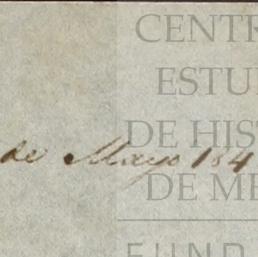 CENTR
ESTU
de Mayo 184
DE HIS
DE ME
FUND